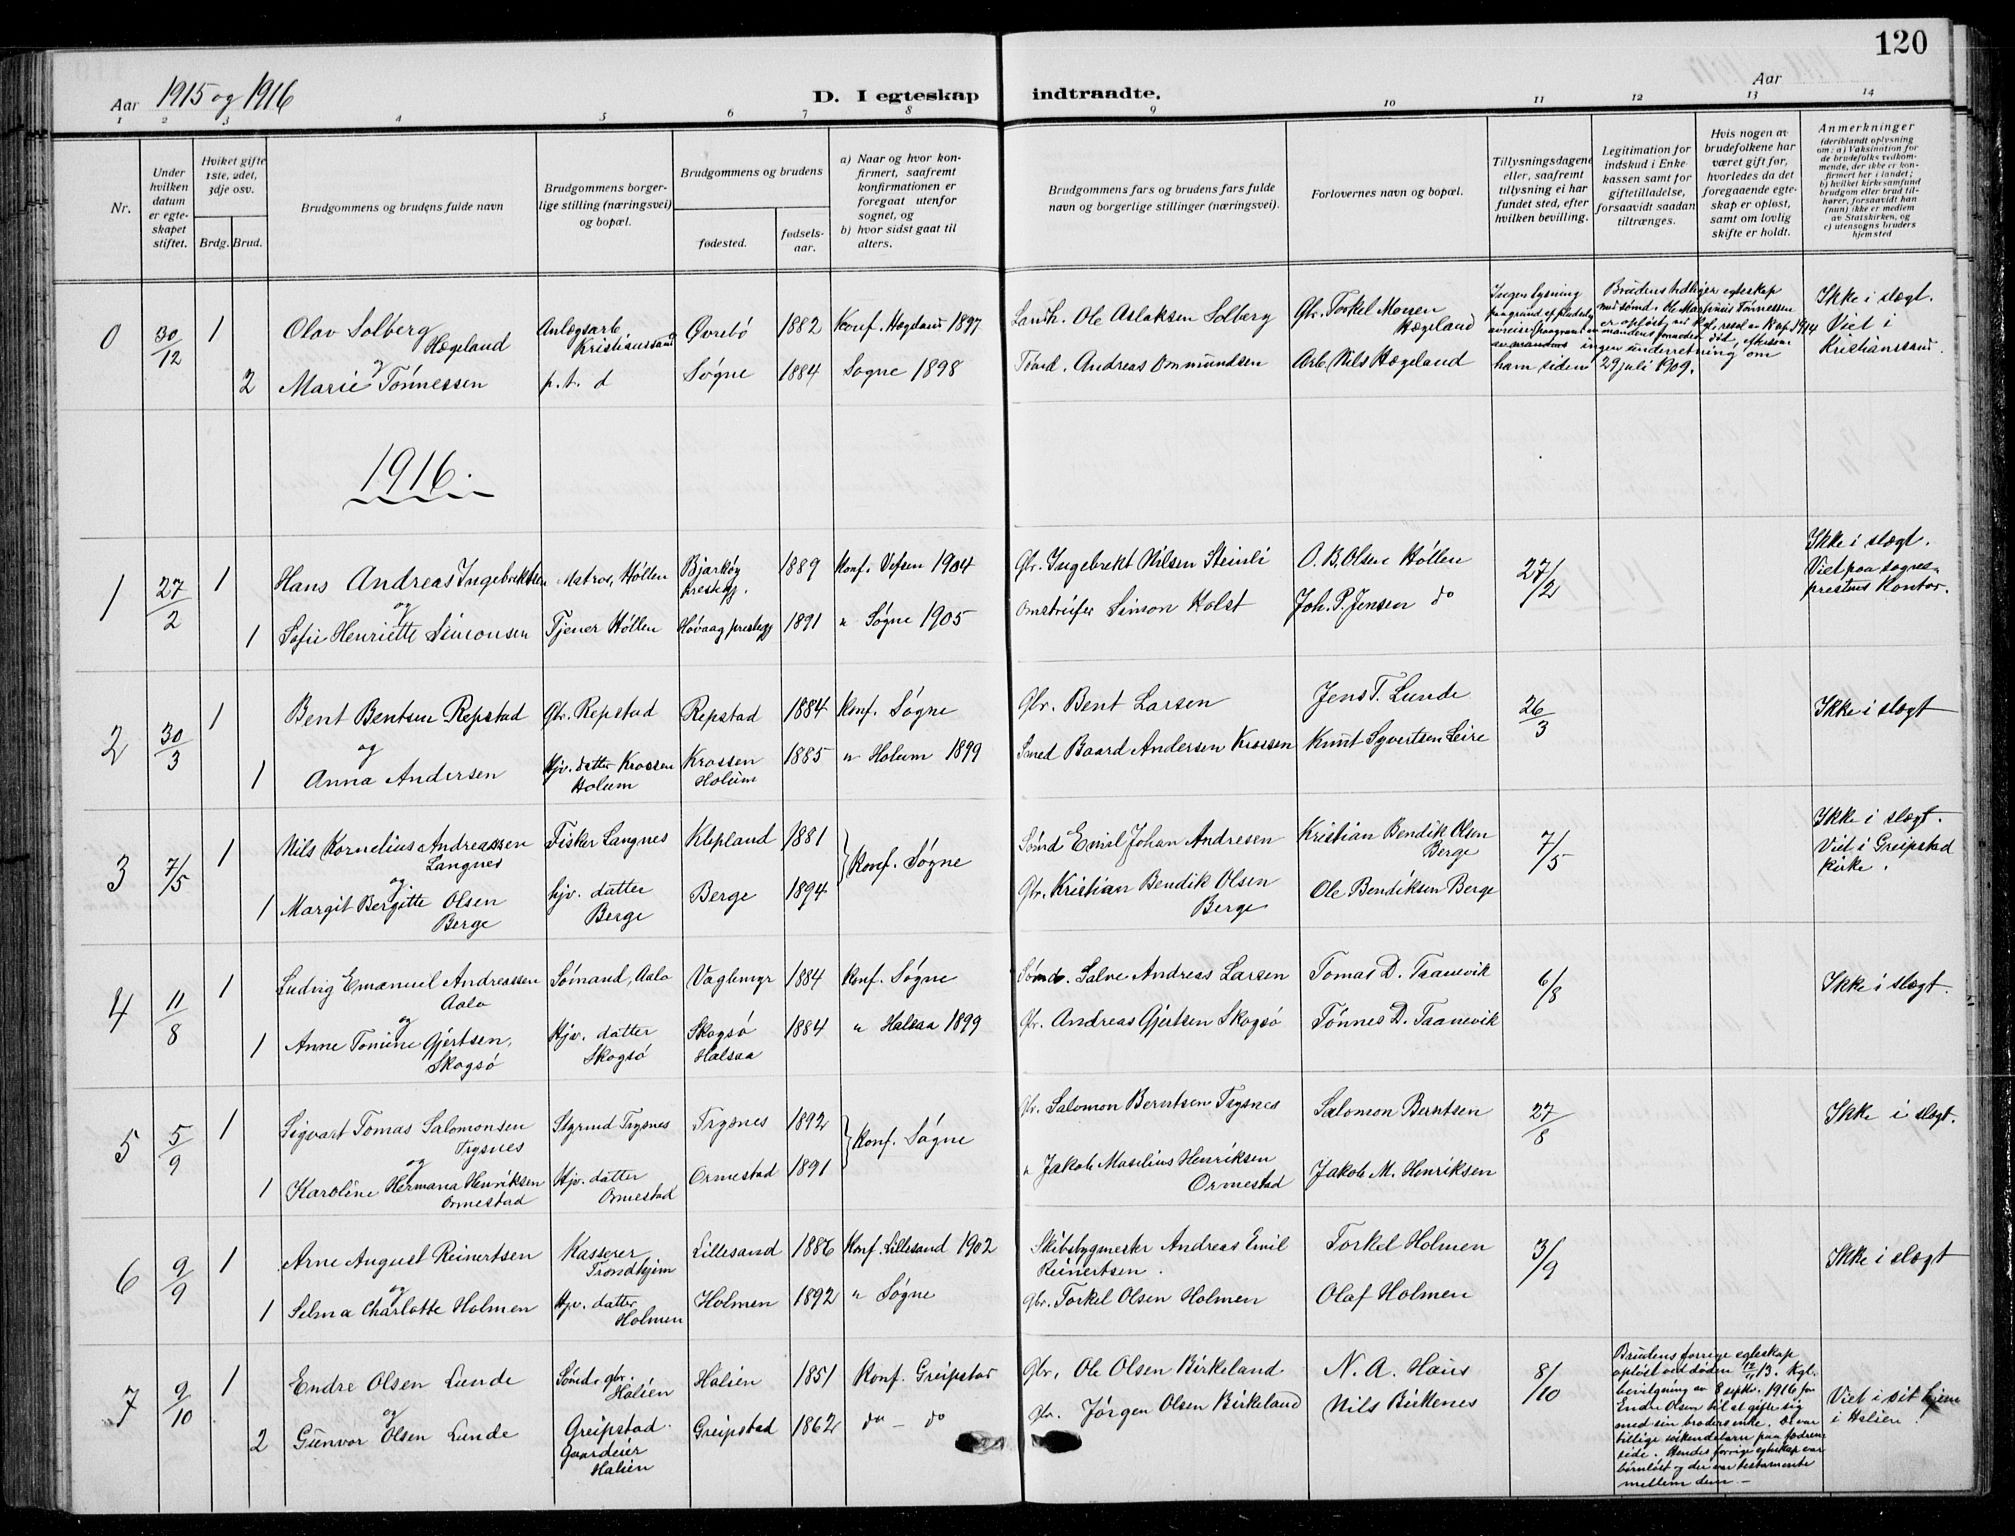 120
Aar 1915 og 1916
D. I egteskap indtraadte.
Aar
1 2 3 4 5 6 7 8 9 10 11 12 13 14
Nr.
Under hvilken datum er egteskapet stiftet.
Hviket gifte 1ste, 2det, 3dje osv.
Brdg. Brud.
Brudgommens og brudens fulde navn
Brudgommens borgerlige stilling (næringsvei) og bopæl.
Brudgommens og brudens
fødested.
fødselsaar.
a) Naar og hvor konfirmert, saafremt konfirmationen er foregaat utenfor sognet, og
b) hvor sidst gaat til alters.
Brudgommens fars og brudens fars fulde navn og borgerlige stillinger (næringsvei).
Forlovernes navn og bopæl.
Tillysningsdagene eller, saafremt tillysning ei har fundet sted, efter hvilken bevilling.
Legitimation for indskud i Enkekassen samt for giftetilladelse, forsaavidt saadan tiltrænges.
Hvis nogen av brudefolkene har været gift før, hvorledes da det foregaaende egteskap er opløst, samt om lovlig skifte er holdt.
Anmerkninger
(deriblandt oplysning om: a) Vaksination for de brudefolks vedkommende, der ikke er konfirmert her i landet; b) hvilket kirkesamfund brudgom eller brud tilhører, forsaavidt han (hun) ikke er medlem av Statskirken, og c) utensogns bruders hjemsted
0 30/12 1 Olav Solberg Hægeland Anlægsarb. Kristianssand Øvrebø 1882 Konf. Hægeland 1897 Landh. Ole Aslaksen Solberg Gbr. Torkel Monsen Hægeland
og
2 Marie Tønnessen p.t. d Søgne 1884 Søgne 1898 Tømd. Andreas Ommundsen Arb. Nils Hægeland
Ingen lysning paa grund af
Brudens tidligere egteskap med sømd. Ole Martinius Tønnessen er opløst
ingen underretning om ham siden 29 juli 1909.
Ikke i slægt.
Viet i Kristianssand.
1916.
1 27/2 1 Hans Andreas Ingebrektsen Matros, Høllen Bjarkøy prestegj. 1889 Konf. Vefsen 1904 Gbr. Ingebrekt Nilsen Steinli O. B. Olsen Høllen 27/2
og
1 Sofie Henriette Simonsen Tjener Høllen Høvaag prestegj 1891 " Søgne 1905 Omstreifer Simon Holst Joh. P. Jensen do
Ikke i slægt.
Viet paa sogneprestens kontor.
2 30/3 1 Bent Bentsen Repstad Gbr. Repstad Repstad 1884 Konf. Søgne Gbr. Bent Larsen Jens T. Lunde 26/3 Ikke i slægt
og
1 Anna Andersen Hjv. datter Krossen Holum Krossen Holum 1885 " Holum 1899 Smed Baard Andersen Krossen Knut Syvertsen Leire
3 7/5 1 Nils Kornelius Andreassen Langnes Fisker Langnes Klepland 1881 Konf. Søgne Sømd Emil Johan Andresen Kristian Bendik Olsen Berge 7/5
og
1 Margit Bergitte Olsen Berge hjv. datter Berge Berge 1894 Gbr. Kristian Bendik Olsen Berge Ole Bendiksen Berge
Ikke i slægt.
Viet i Greipstad kirke.
4 11/8 1 Ludvig Emanuel Andreassen Aalo Sømand, Aalo Vaglemyr 1884 Konf. Søgne Sømd. Salve Andreas Larsen Tomas D. Taanevik 6/8 Ikke i slægt.
og
1 Anne Tomine Gjertsen, Skogsø Hjv. datter Skogsø Skogsø Halsaa 1884 " Halsaa 1899 Gbr. Andreas Gjertsen Skogsø Tønnes D. Taanevik
5 5/9 1 Sigvart Tomas Salomonsen Trysnes Styrmd Trysnes Trysnes 1892 Konf. Søgne Gbr. Salomon Berntsen Trysnes Salomon Berntsen 27/8 Ikke i slægt.
og
1 Karoline Hermana Henriksen Ormestad Hjv. datter Ormestad Ormestad 1891 " Jakob Maselius Henriksen Ormestad Jakob M. Henriksen
6 9/9 1 Arne August Reinertsen Kasserer Trondhjem Lillesand 1886 Konf. Lillesand 1902 Skibsbygmester Andreas Emil Reinertsen. Torkel Holmen 3/9 Ikke i slægt
og
1 Selma Charlotte Holmen Hjv. datter Holmen Holmen 1892 " Søgne Gbr. Torkel Olsen Holmen Olaf Holmen
7 9/10 1 Endre Olsen Lunde Sømd. gbr. Halien Halien 1851 Konf. Greipstad Gbr. Ole Olsen Birkeland N. A. Haus 8/10
og
2 Gunvor Olsen Lunde Greipstad. Gaardeier Halien Greipstad 1862 do - do Gbr. Jørgen Olsen Birkeland Nils Birkenes
Brudens forrige egteskap
opløst ved døden 12/1 13. Kgl.
bevilgning av 8 septbr. 1916 for
Endre Olsen til at gifte sig
med sin broders enke. De var
tillige søskendebarn paa fædrene
side. Hendes forrige egteskap var
børnløst og der var testamente
mellem dem. -
Viet i sit hjem
i Halien.